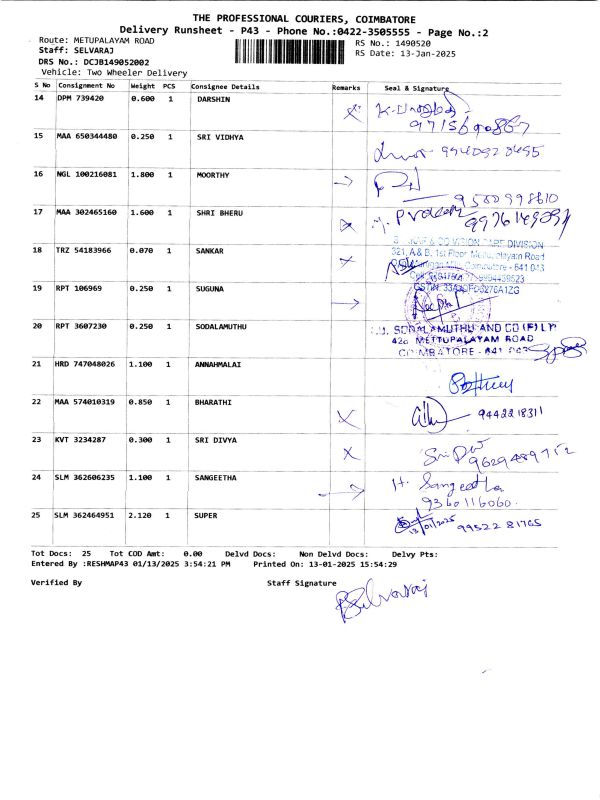 THE PROFESSIONAL COURIERS, COIMBATORE
Delivery Runsheet - P43 - Phone No.:0422-3505555 - Page No.:2
Route: METUPALAYAM ROAD
RS No.: 1490520
Staff: SELVARAJ
RS Date: 13-Jan-2025
DRS No.: DCJB149052002
Vehicle: Two Wheeler Delivery
S No Consignment No Weight PCS Consignee Details Remarks Seal & Signature
14 DPM 739420 0.600 1 DARSHIN
15 MAA 650344480 0.250 1 SRI VIDHYA
16 NGL 100216081 1.800 1 MOORTHY
9500998610
17 MAA 302465160 1.600 1 SHRI BHERU
18 TRZ 54183966 0.070 1 SANKAR
19 RPT 106969 0.250 1 SUGUNA
20 RPT 3607230 0.250 1 SODALAMUTHU
SODALAMUTHU AND CO (P) LT
42a METTUPALAYAM ROAD
COIMBATORE - 641 043
21 HRD 747048026 1.100 1 ANNAHMALAI
22 MAA 574010319 0.850 1 BHARATHI
9442218311
23 KVT 3234287 0.300 1 SRI DIVYA
9629489752
24 SLM 362606235 1.100 1 SANGEETHA
H. Sangeetha
9360116060
25 SLM 362464951 2.120 1 SUPER
13/01/2025 99522 81765
Tot Docs: 25 Tot COD Amt: 0.00 Delvd Docs: Non Delvd Docs: Delvy Pts:
Entered By :RESHMAP43 01/13/2025 3:54:21 PM Printed On: 13-01-2025 15:54:29
Verified By Staff Signature
Selvaraj